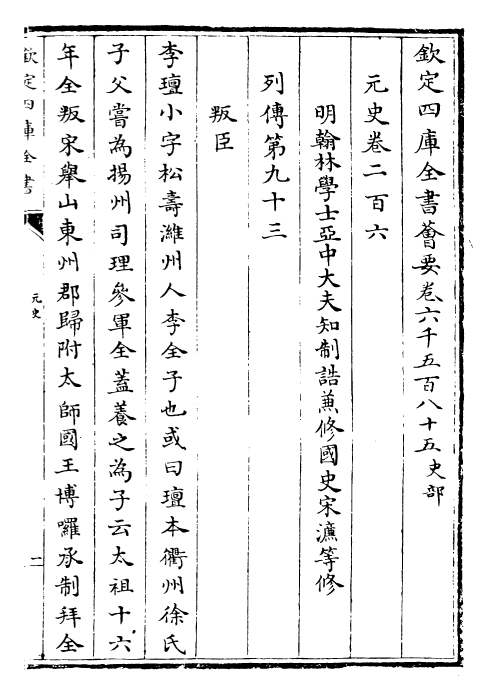 欽定四庫全書薈要卷六千五百八十五史部
元史卷二百六
明翰林學士亞中大夫知制誥兼修國史宋濂等修
列傳第九十三
叛臣
李璮小字松壽濰州人李全子也或曰璮本衢州徐氏
子父嘗為揚州司理參軍全蓋養之為子云太祖十六
年全叛宋舉山東州郡歸附太師國王博囉承制拜全
欽定四庫全書
元史
二